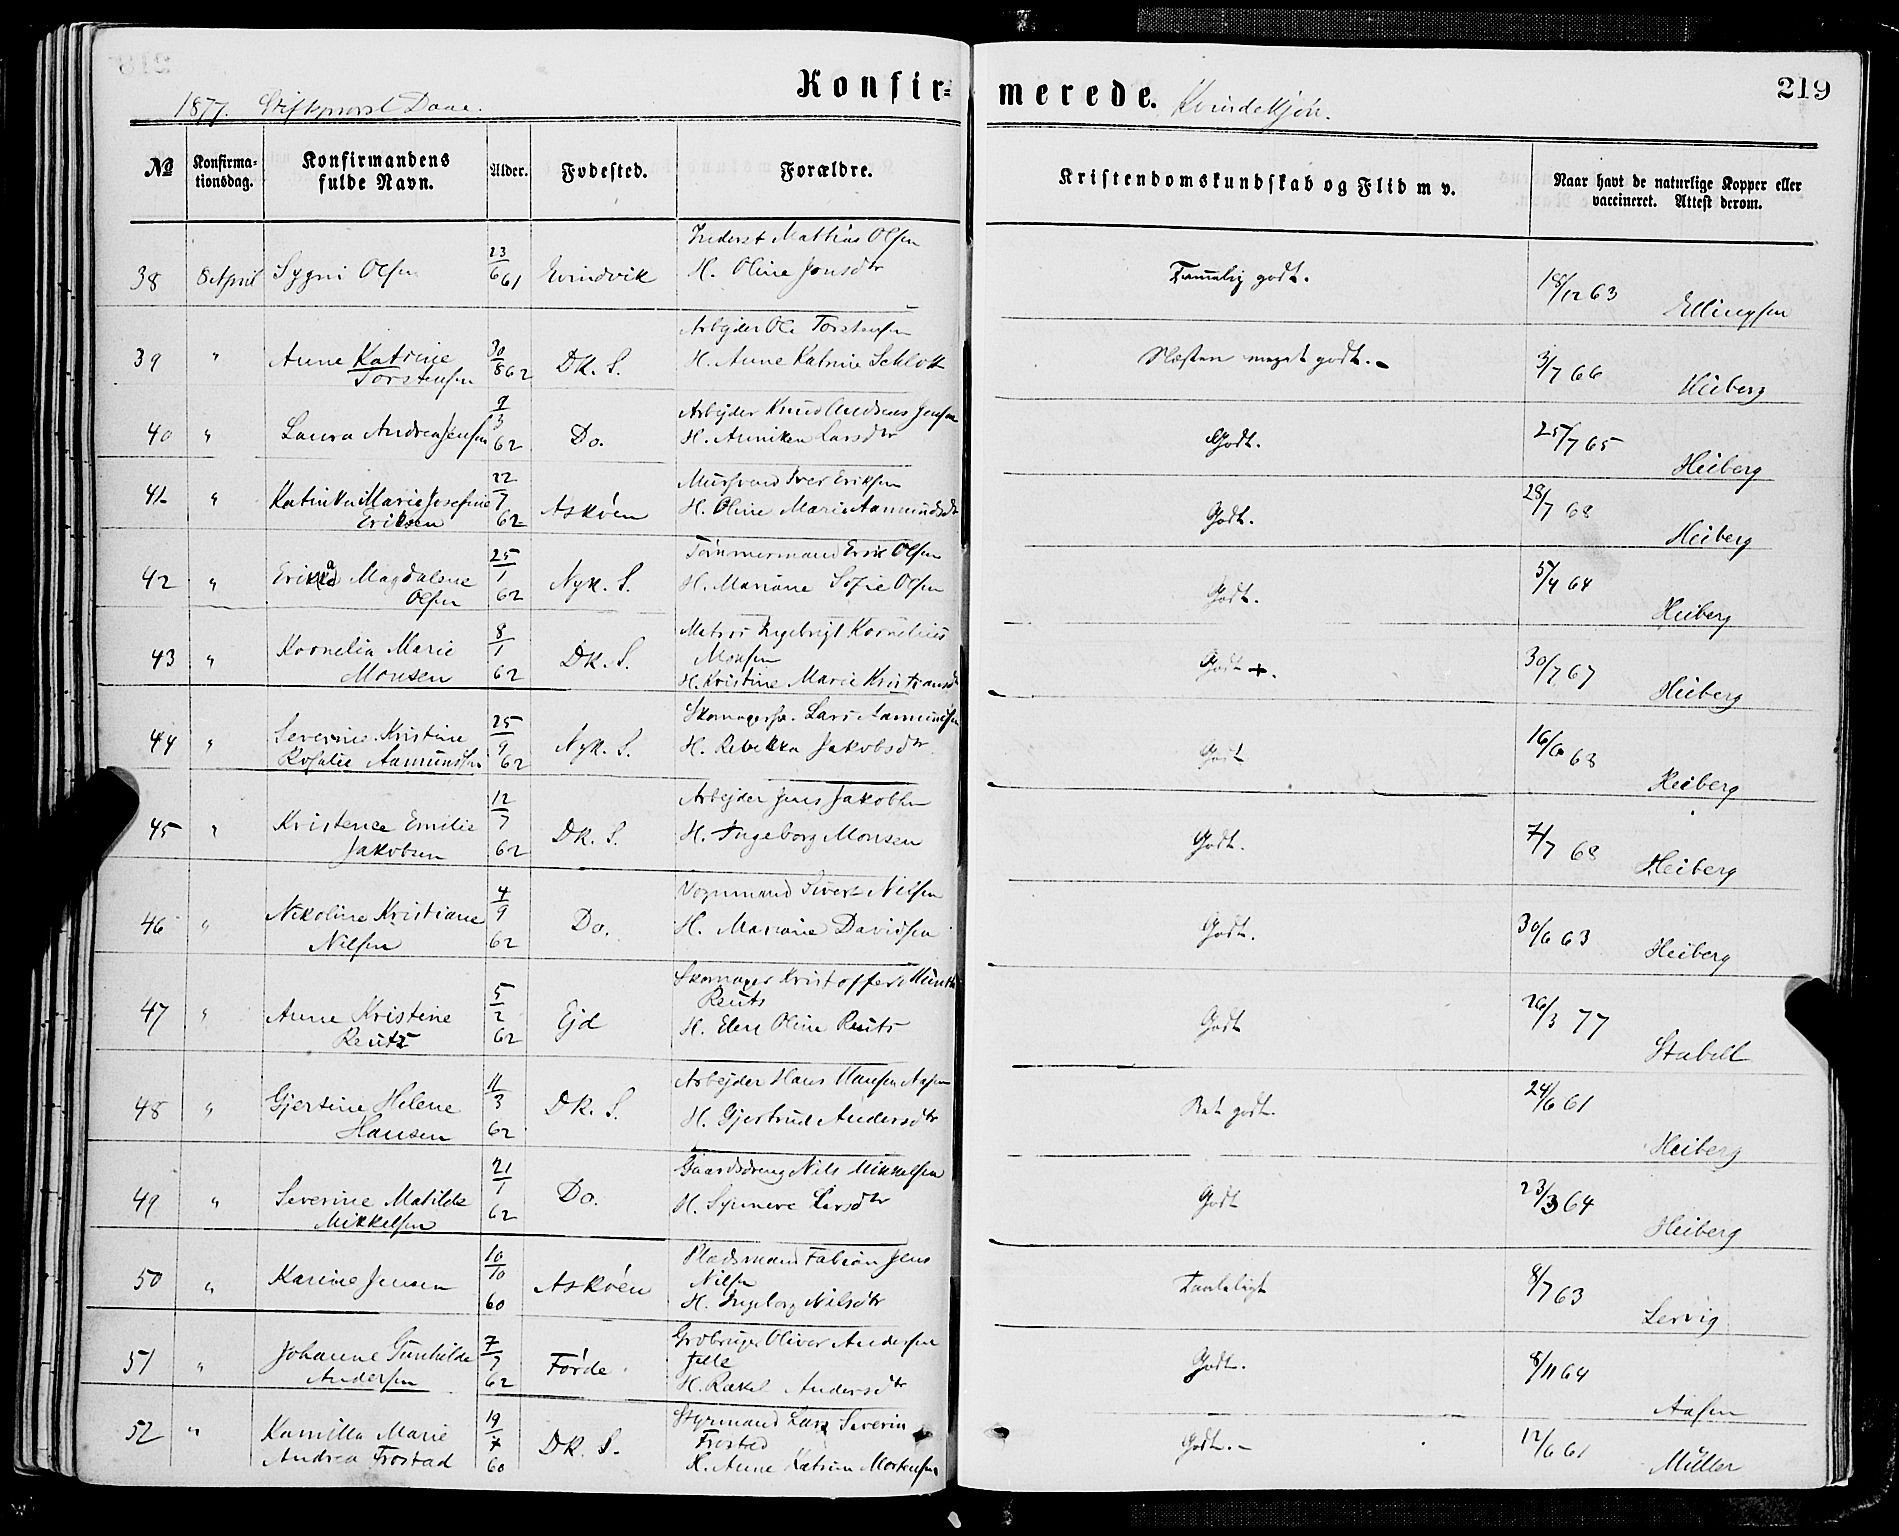 219
Konfir- merede.
1877. Stiftsprovst Daae.
Kvindekjøn.
№ Konfirma-tionsdag. Konfirmandens fulde Navn. Alder. Fødested. Forældre. Kristendomskundskab og Flid m v. Naar havt de naturlige Kopper eller vaccineret. Attest derom.
Inderst Mathias Olsen
38 8 April Sygni Olsen 23/6 61 Evindvik H. Oline Jonsdtr Temmelig godt. 18/12 63 Ellingsen
Arbejder Ole Torstensen
39 " Anne Katrine 30/8 62 DK. S. H. Anne Katrine Schlott Næsten meget godt. - 3/7 66 Heiberg
Torstensen
Arbejder Knud Andreas Jensen
40 " Laura Andrea Jensen 9/3 62 Do. H. Anniken Larsdtr Godt. 25/7 65 Heiberg
Mursvend Iver Eriksen
41 " Katinka Marie Josefine 22/7 62 Askøen H. Oline Marie Aamundsdtr Godt. 28/7 68 Heiberg
Eriksen
Tømmermand Erik Olsen
42 " Erikka Magdalene 25/1 62 Nyk. S. H. Mariane Sofie Olsen Godt. 5/4 64 Heiberg
Olsen
Matros Ingebrigt Kornelius
43 " Kornelia Marie 8/1 62 DK. S. Monsen Godt +. 30/7 67 Heiberg
Monsen H. Kristine Marie Kristiansdtr
Skomagersv. Lars Aamundsen
44 " Severine Kristine 25/9 62 Nyk. S. H. Rebekka Jakobsdtr Godt 16/6 68 Heiberg
Rosalie Aamundsen
Arbejder Jens Jakobsen
45 " Kristence Emilie 12/7 62 DK. S. H. Ingeborg Monsen Godt. 7/7 68 Heiberg
Jakobsen
Vognmand Sivert Nilsen
46 " Nikoline Kristiane 4/9 62 Do. H. Mariane Davidsen Godt. 30/6 63 Heiberg
Nilsen
Skomager Kristoffer Munthe
47 " Anne Kristine 5/2 62 Ejd Reutz Godt 26/3 77 Stabell
Reutz H. Elen Oline Reutz
Arbejder Hans Hansen
48 " Gjertine Helene 11/3 62 DK. S. H. Gjertrud Andersdtr Ret godt. 24/6 61 Heiberg
Hansen
Gaardsdreng Nils Mikkelsen
49 " Severine Matilde 21/1 62 Do. H. Synneve Larsdtr Godt 23/3 64 Heiberg
Mikkelsen
Pladsmand Fabian Jens
50 " Karine Jensen 10/10 60 Askøen Nilsen Taaleligt 8/7 63 Lervig
H. Ingeborg Nilsdtr
Grdbruger Oliver Andersen
51 " Johanne Gunhilde 7/7 62 Førde Godt. 8/11 64 Aasen
Andersen H. Rakel Andersdtr
Styrmand Lars Severin
52 " Kamilla Marie 19/4 60 DK. S. Frostad Godt. - 12/6 61 Müller
Andrea Frostad H. Anne Katrine Mortensen